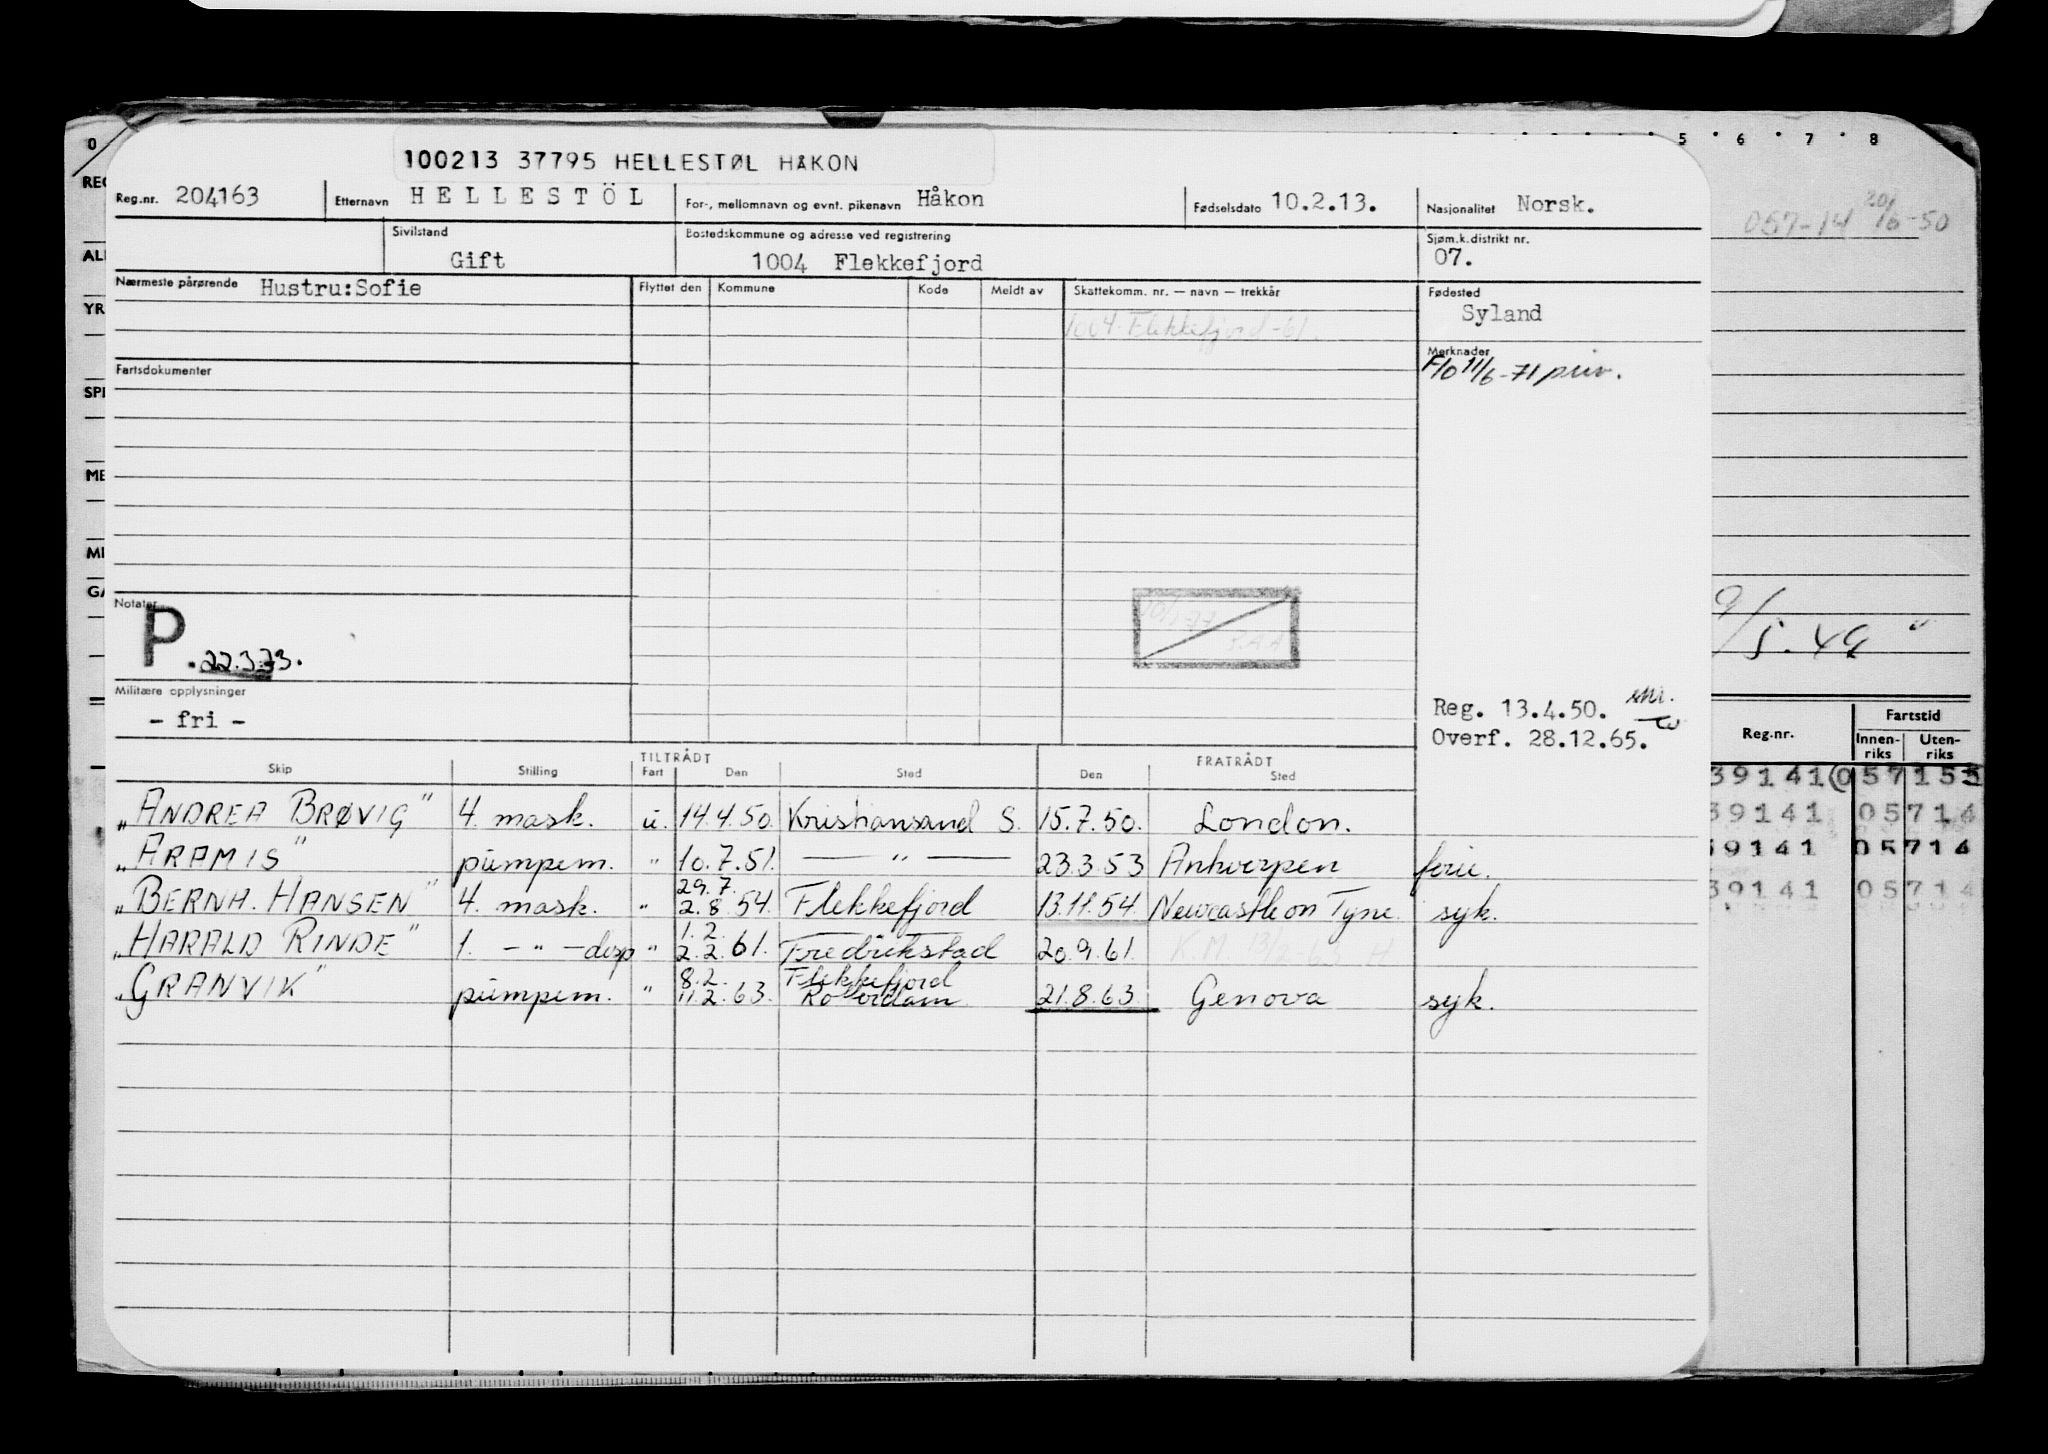 0 5 6 7 8
100213 37795 HELLESTØL HÅKON
Reg.nr. 204163 Etternavn HELLESTÖL For-, mellomnavn og evnt. pikenavn Håkon Fødselsdato 10.2.13. Nasjonalitet Norsk.
Sivilstand Gift Bostedskommune og adresse ved registrering 1004 Flekkefjord Sjøm.k.distrikt nr. 07.
Nærmeste pårørende Hustru:Sofie Flyttet den Kommune Kode Meldt av Skattekomm. nr. — navn — trekkår Fødested
1004 Flekkefjord -61. Syland
Fartsdokumenter Merknader
F/o 11/6-71 priv.
057-14 20/6-50
Notater
P .22.3.73.
9/5.49 "
Militære opplysninger
- fri -
Reg. 13.4.50.
Overf. 28.12.65.
Skip Stilling TILTRÅDT Fart Den Sted FRATRÅDT Den Sted
Reg.nr. Fartstid Innen-riks Uten-riks
„ANDREA BRØVIG" 4. mask. u. 14.4.50. Kristiansand S. 15.7.50. London.
„ARAMIS" pumpem. " 10.7.51. — " — 23.3.53 Antwerpen ferie.
„BERNH. HANSEN" 4. mask. " 29.7. 2.8.54. Flekkefjord 13.11.54. Newcastle on Tyne. syk.
„HARALD RINDE" 1. — " — disp " 1.2. 2.2.61. Fredrikstad 20.9.61. K.M. 13/2-63 H
„GRANVIK" pumpem. " 8.2. 11.2.63. Flekkefjord Rotterdam 21.8.63. Genova syk.
39141 057155
39141 05714
39141 05714
39141 05714